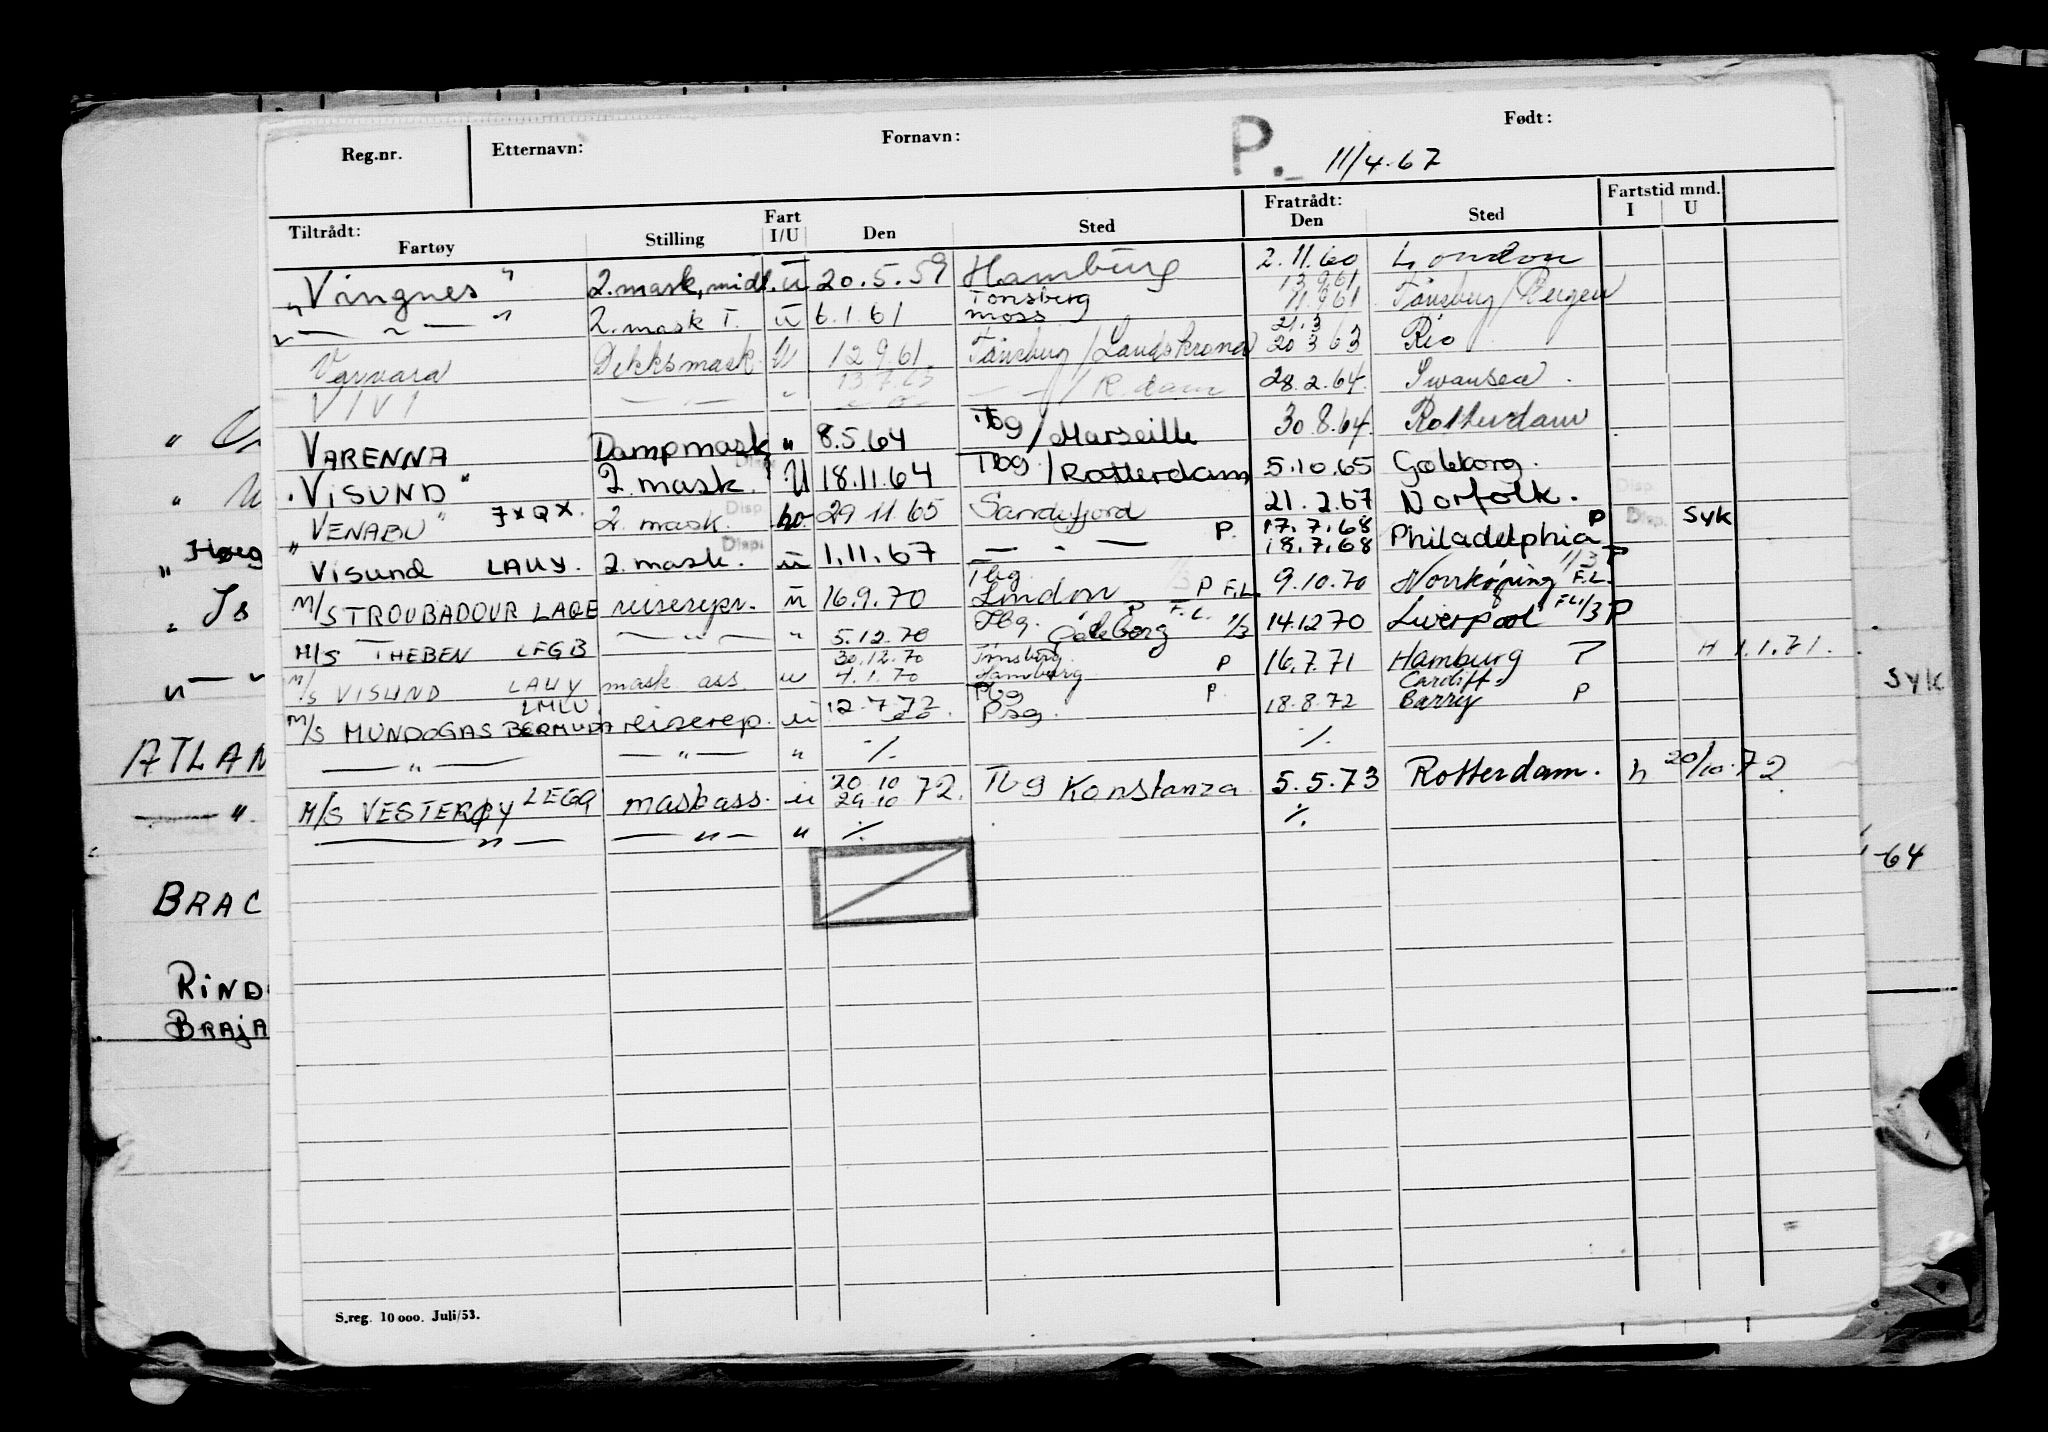 Reg.nr. Etternavn: Fornavn: P. 11/4.67 Født:
Tiltrådt: Fartøy Stilling Fart I/U Den Sted Fratrådt: Den Sted Fartstid mnd. I U
„Vingnes" 2.mask, midl. ü 20.5.59 Hamburg 2.11.60 London
" — " — " 2.mask T. ü 6.1.61 Tønsberg Moss 13.9.61 11.9.61 Tønsberg / Bergen
Varvara Dekksmask U 12.9.61 Tønsberg / Landskrona 21.3 20.3.63 Rio
VIVI — " — " 13.7.63 — " — / R.dam 28.2.64. Swansea.
VARENNA Dampmask " 8.5.64 Tbg / Marseille 30.8.64. Rotterdam
"VISUND" 2.mask. U 18.11.64 Tbg. / Rotterdam 5.10.65 Gøteborg.
"VENABU" JXQX. 2. mask. Disp. ho 29.11.65 Sandefjord 21.2.67 Norfolk. Disp.
" Visund LAUY. 2.mask. Disp. ü 1.11.67 — " — P. 17.7.68 18.7.68 Philadelphia P Disp. Syk
M/S TROUBADOUR LAQE reiserepr. ü 16.9.70 Tbg. London P F.L. 9.10.70 Norrkøping F.L. 1/3 P
M/S THEBEN LFGB — " — " 5.12.70 Tbg. Gøteborg P F.L. 1/3 14.12.70 Liverpool F.L. 1/3 P
M/S VISUND LAUY mask ass. u 30.12.70 4.1.70 Tønsberg. Hamburg P 16.7.71 Hamburg P H 1.1.71.
M/S MUNDOGAS BERMUDA LMLU. reiserep. ü 12.7.72 Tbg P. 18.8.72 Cardiff Barry P
— " — — " — " ./. ./.
M/S VESTERØY LEGQ maskass. ü 20.10 29.10 72. Tbg Konstanza 5.5.73 Rotterdam. h 20/10.72
— " — — " — " ./. ./.
S.reg. 10 000. Juli/53.
„ Høeg
„ Is
" — "
ATLAN
— ".
BRAC
RIND
BRAJA
SYK
-64